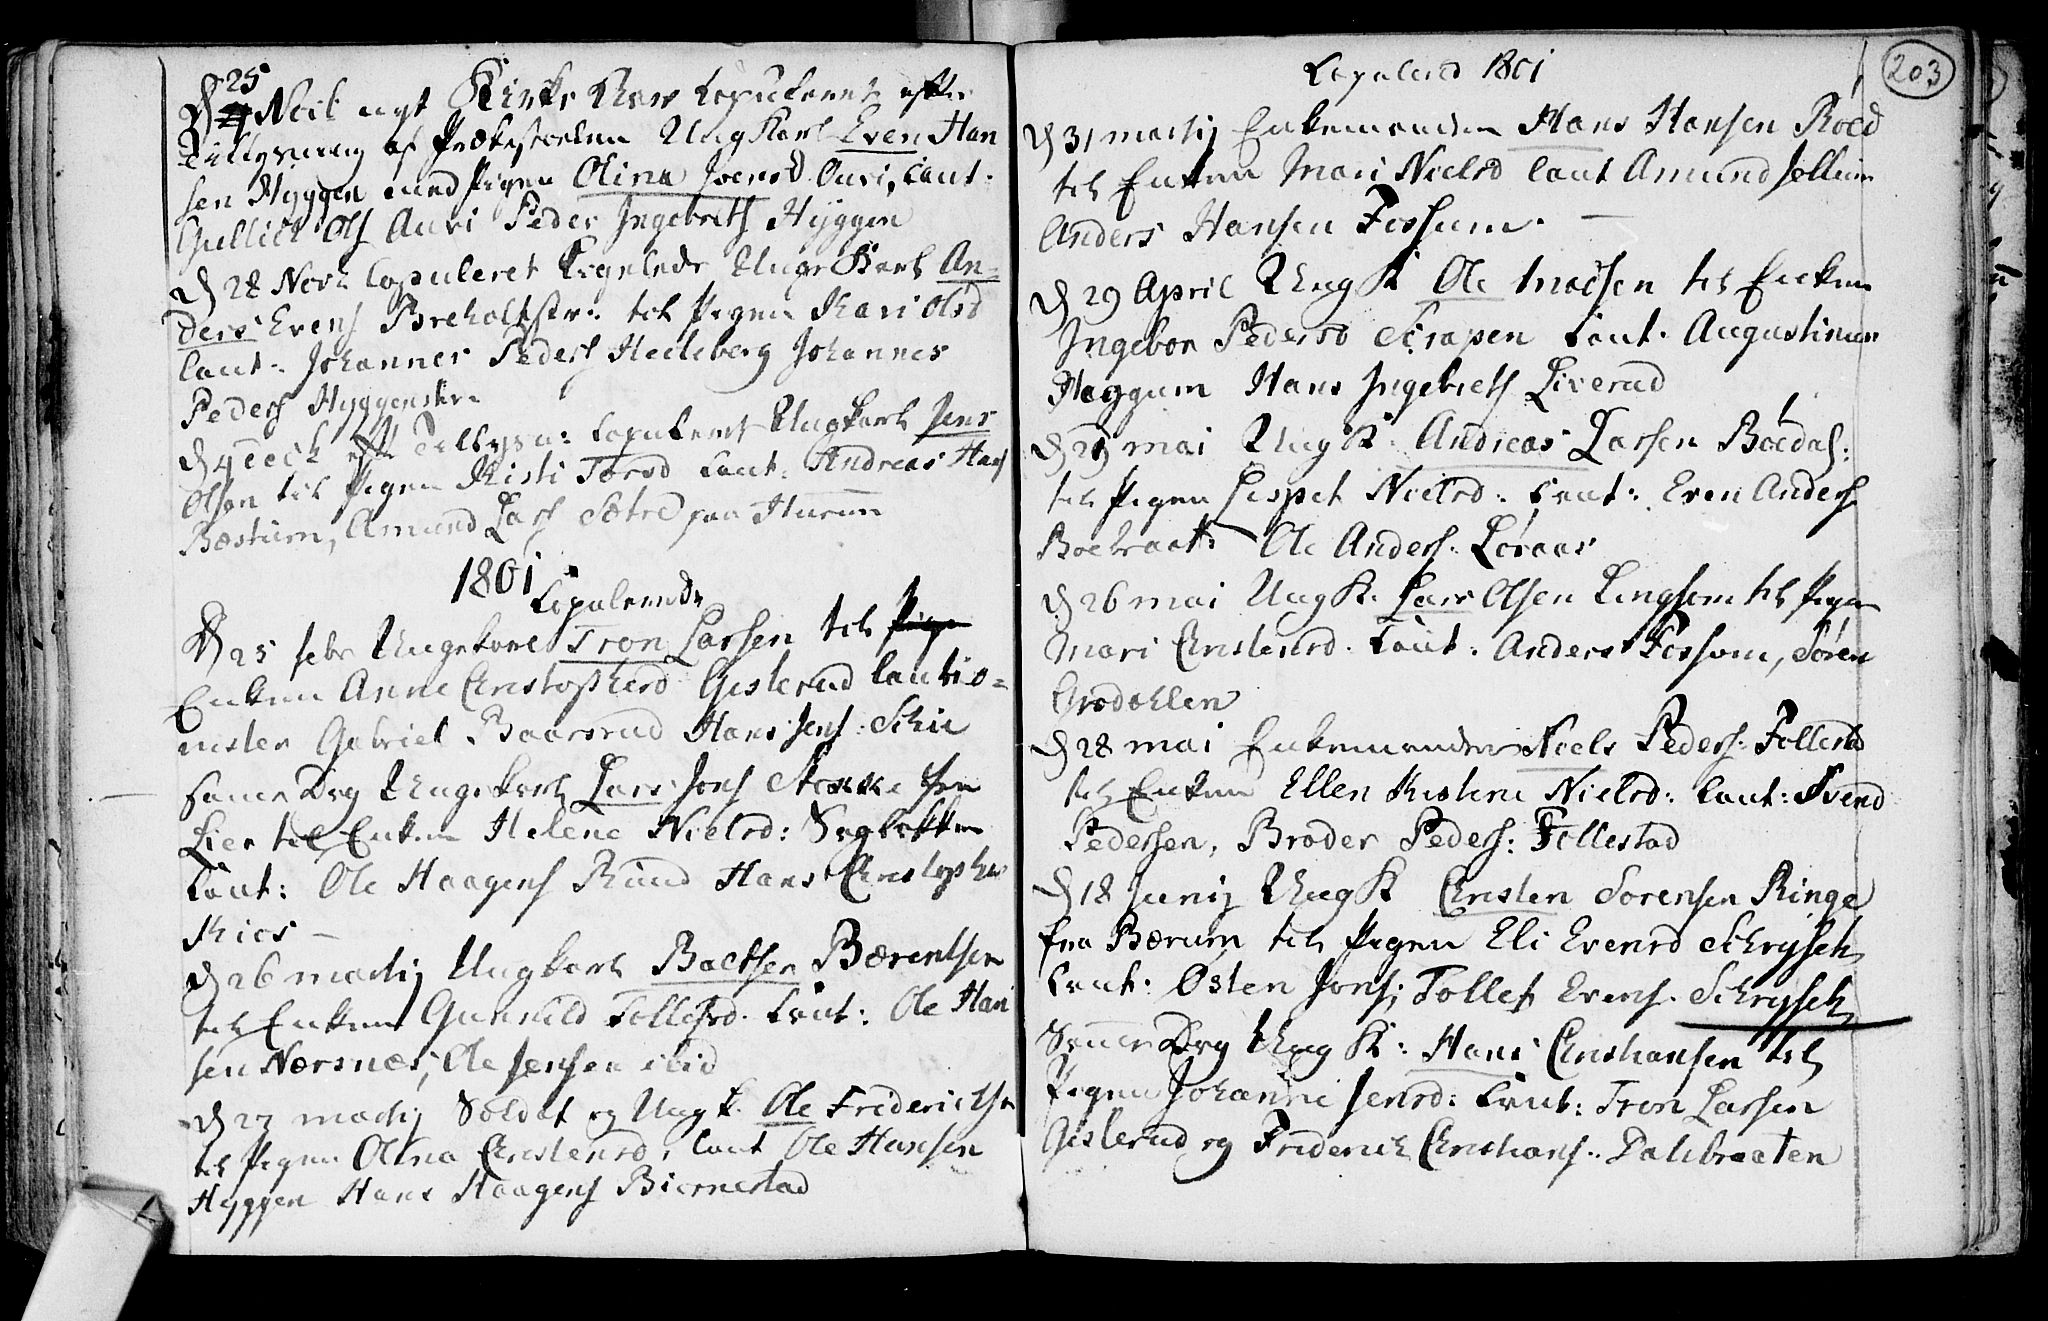 D 25 Novb udi Kirke Choer Copuleret efter
Tillysning af Prækestoelen Ung Karl Even Han
sen Hyggen med Pigen Olina Iversd Ouri, Caut.
Gullich Ols Auri Peder Ingebrets Hyggen
D 28 Novb Copuleret Ligeledes Unge Karl An-
ders Evens Breholtstr: til Pigen Kari Olsd
Caut. Johannes Peders Hedeberg Johannes
Peders Hyggenstr.
D 4 Decb efter Tillysn: Copuleret Ungkarl Jens
Olsen til Pigen Kisti Torsd Caut. Andreas Hans
Bæstum, Amund Lars Sætre paa Hurum
1801
Copulerede
D 25 febr Ungekarl Tron Larsen til
Enken Anne Christophersd Gislerud Cautio-
nister Gabriel Baarsrud Hans Jens: Schie
Samme Dag Ungekarl Lars Jons Stokke fra
Lier til Enken Helene Nielsd:
Caut: Ole Haagens Ruud Hans Christophers
Kios
D 26 martij Ungkarl Baltser Bærentsen
til Enken Gunnild Tollefsd. Caut: Ole Han
sen Nærsnæs, Ole Jensen ibid
D 27 martij Soldat og Ung K. Ole Friderichsen
til Pigen Olina Christensd, Caut Ole Hansen
Hyggen Hans Haagens Biørnestad
203
Copulered 1801
D 31 martij Enkemanden Hans Hansen Roed
til Enken Mari Nielsd Caut Amund Jellum
Anders Hansen Fossum.
D 29 April Ung K Ole Madsen til Enken
Ingebor Pedersd Scrapen Caut. Augustinus
Haggum Hans Ingebrets Liverud
D 29 mai Ung K. Andreas Larsen Bøedal:
til Pigen Lispet Nielsd: Caut: Even Anders
Boebraat: Ole Anders: Løraas
D 26 mai Ung K. Lars Olsen Lingsom til Pigen
Mari Christensd. Caut: Anders Fossum, Søren
Grødahlen
D 28 mai Enkemanden Niels Peders: Follestad
til Enken Ellen Kistine Nielsd: Caut: Svend
Pedersen, Broder Peders: Follestad
D 18 Junij Ung K Christen Sorensen Ringe
fra Bærum til Pigen Eli Evensd Schryseth
Caut: Østen Jons; Tollef Evens. Schryseth
Samme Dag Ung K: Hans Christiansen til
Pigen Johanne Jensd: Caut: Tron Larsen
Gislerud og Friderich Christians: Dalebraaten